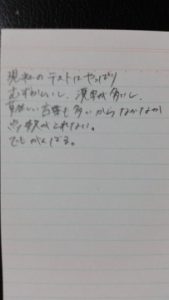 現社のテストはやっぱり
むずかしいし、漢字が多いし、
難しい言葉も多いからなかなか
点数がとれない。
でもがんばる。